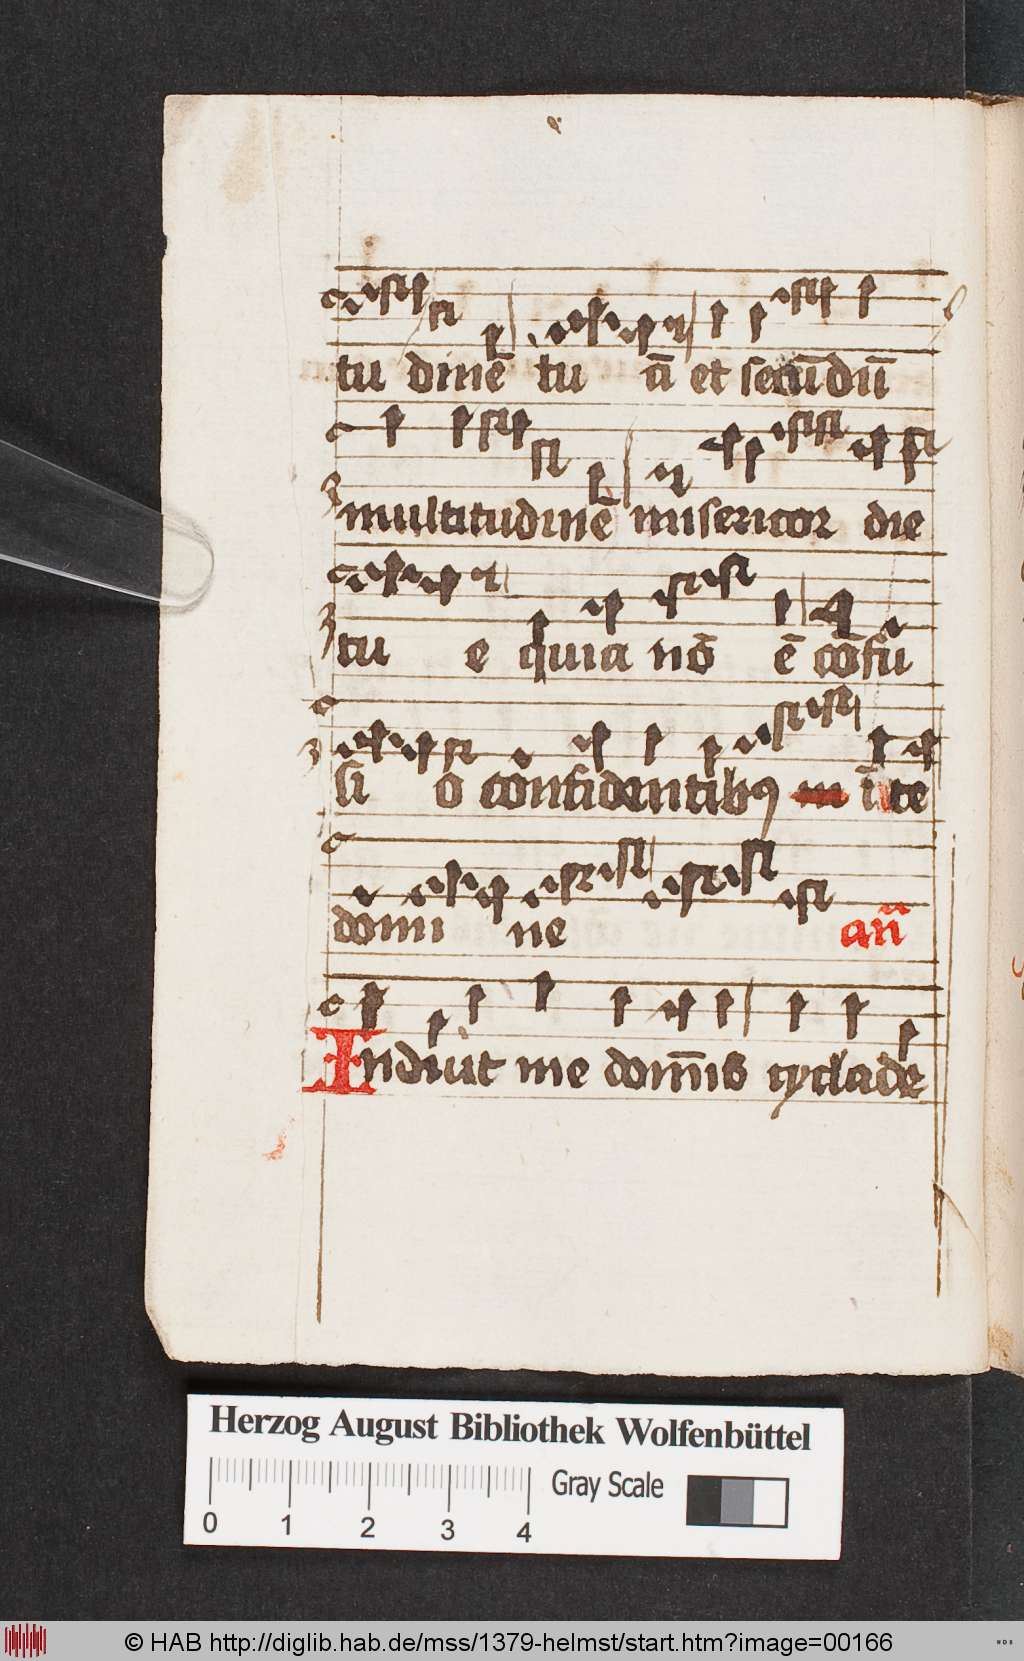 tu dinē tu ā et secūdū
multitudinē misericor die
tu e quia nō ē cōfu
si o confidentibꝯ ī te
domi ne an̄
Induit me dom̄s cyclade
Herzog August Bibliothek Wolfenbüttel
Gray Scale
0 1 2 3 4
© HAB http://diglib.hab.de/mss/1379-helmst/start.htm?image=00166